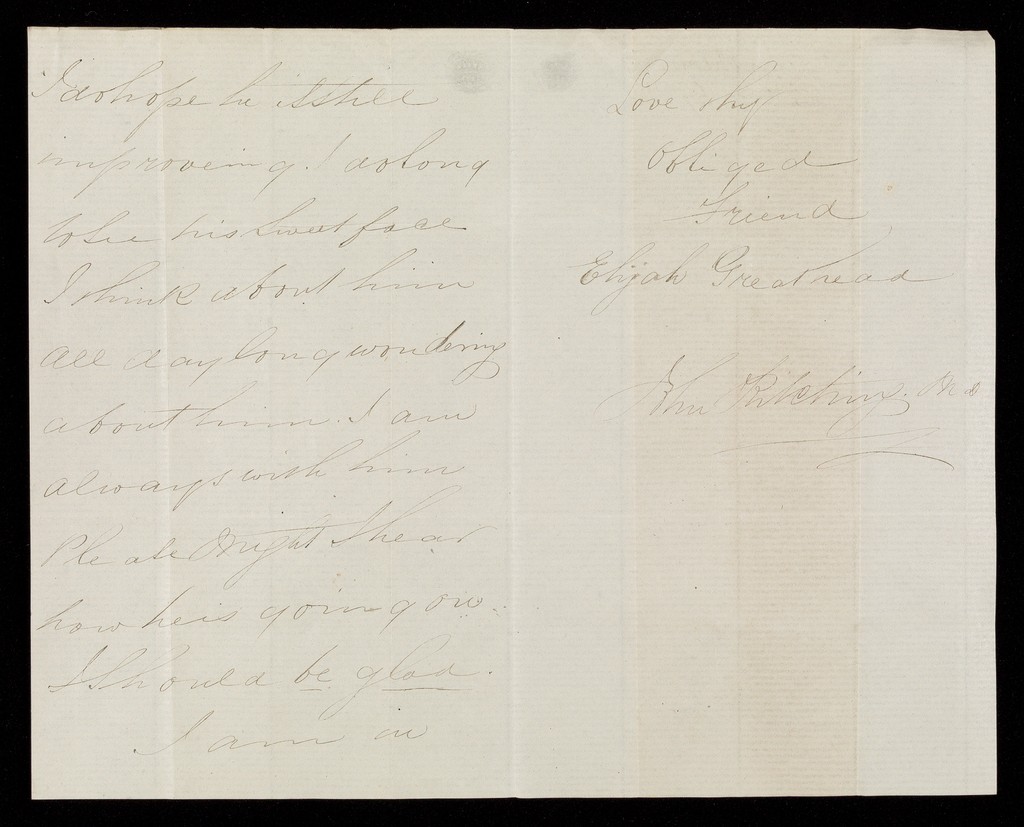 I do hope he is still
improveing! I do long
to see his sweet face
I think about him
all day long wondering
about him. I am
always with him
Please might I hear
how he is going on.
I should be glad.
I am in
Love thy
Obliged
Friend
Elijah Greathead
John Kitching. M d